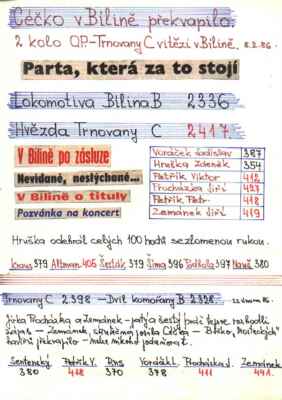 Céčko v Bílině překvapilo.
2 kolo OP-Trnovany C vítězí v Bílině. 8.2.86.
Parta, která za to stojí
Lokomotiva Bílina B 2336
Hvězda Trnovany C 2417.
V Bílině po zásluze
Nevídané, neslýchané...
V Bílině o tituly
Pozvánka na koncert
Voráček Ladislav 387
Hruška Zdeněk 354
Petřík Viktor 412
Procházka Jiří 427
Petřík Petr 418
Zemánek Jiří 419
Hruška odehrál celých 100 hodů se zlomenou rukou.
Kraus 379 Altman 405 Šesták 379 Šíma 396 Podhola 397 Nauš 380
Trnovany C 2398 - Dvíl Komořany B 2328
Jirka Procházka a Zemánek - pátý a šestý
zápas - Zemánek,
překvapilo - málo někoho
Sentenský Petřík V. Pins Vorášek L. Procházka J. Zemánek.
380 418 370 378 411 441.